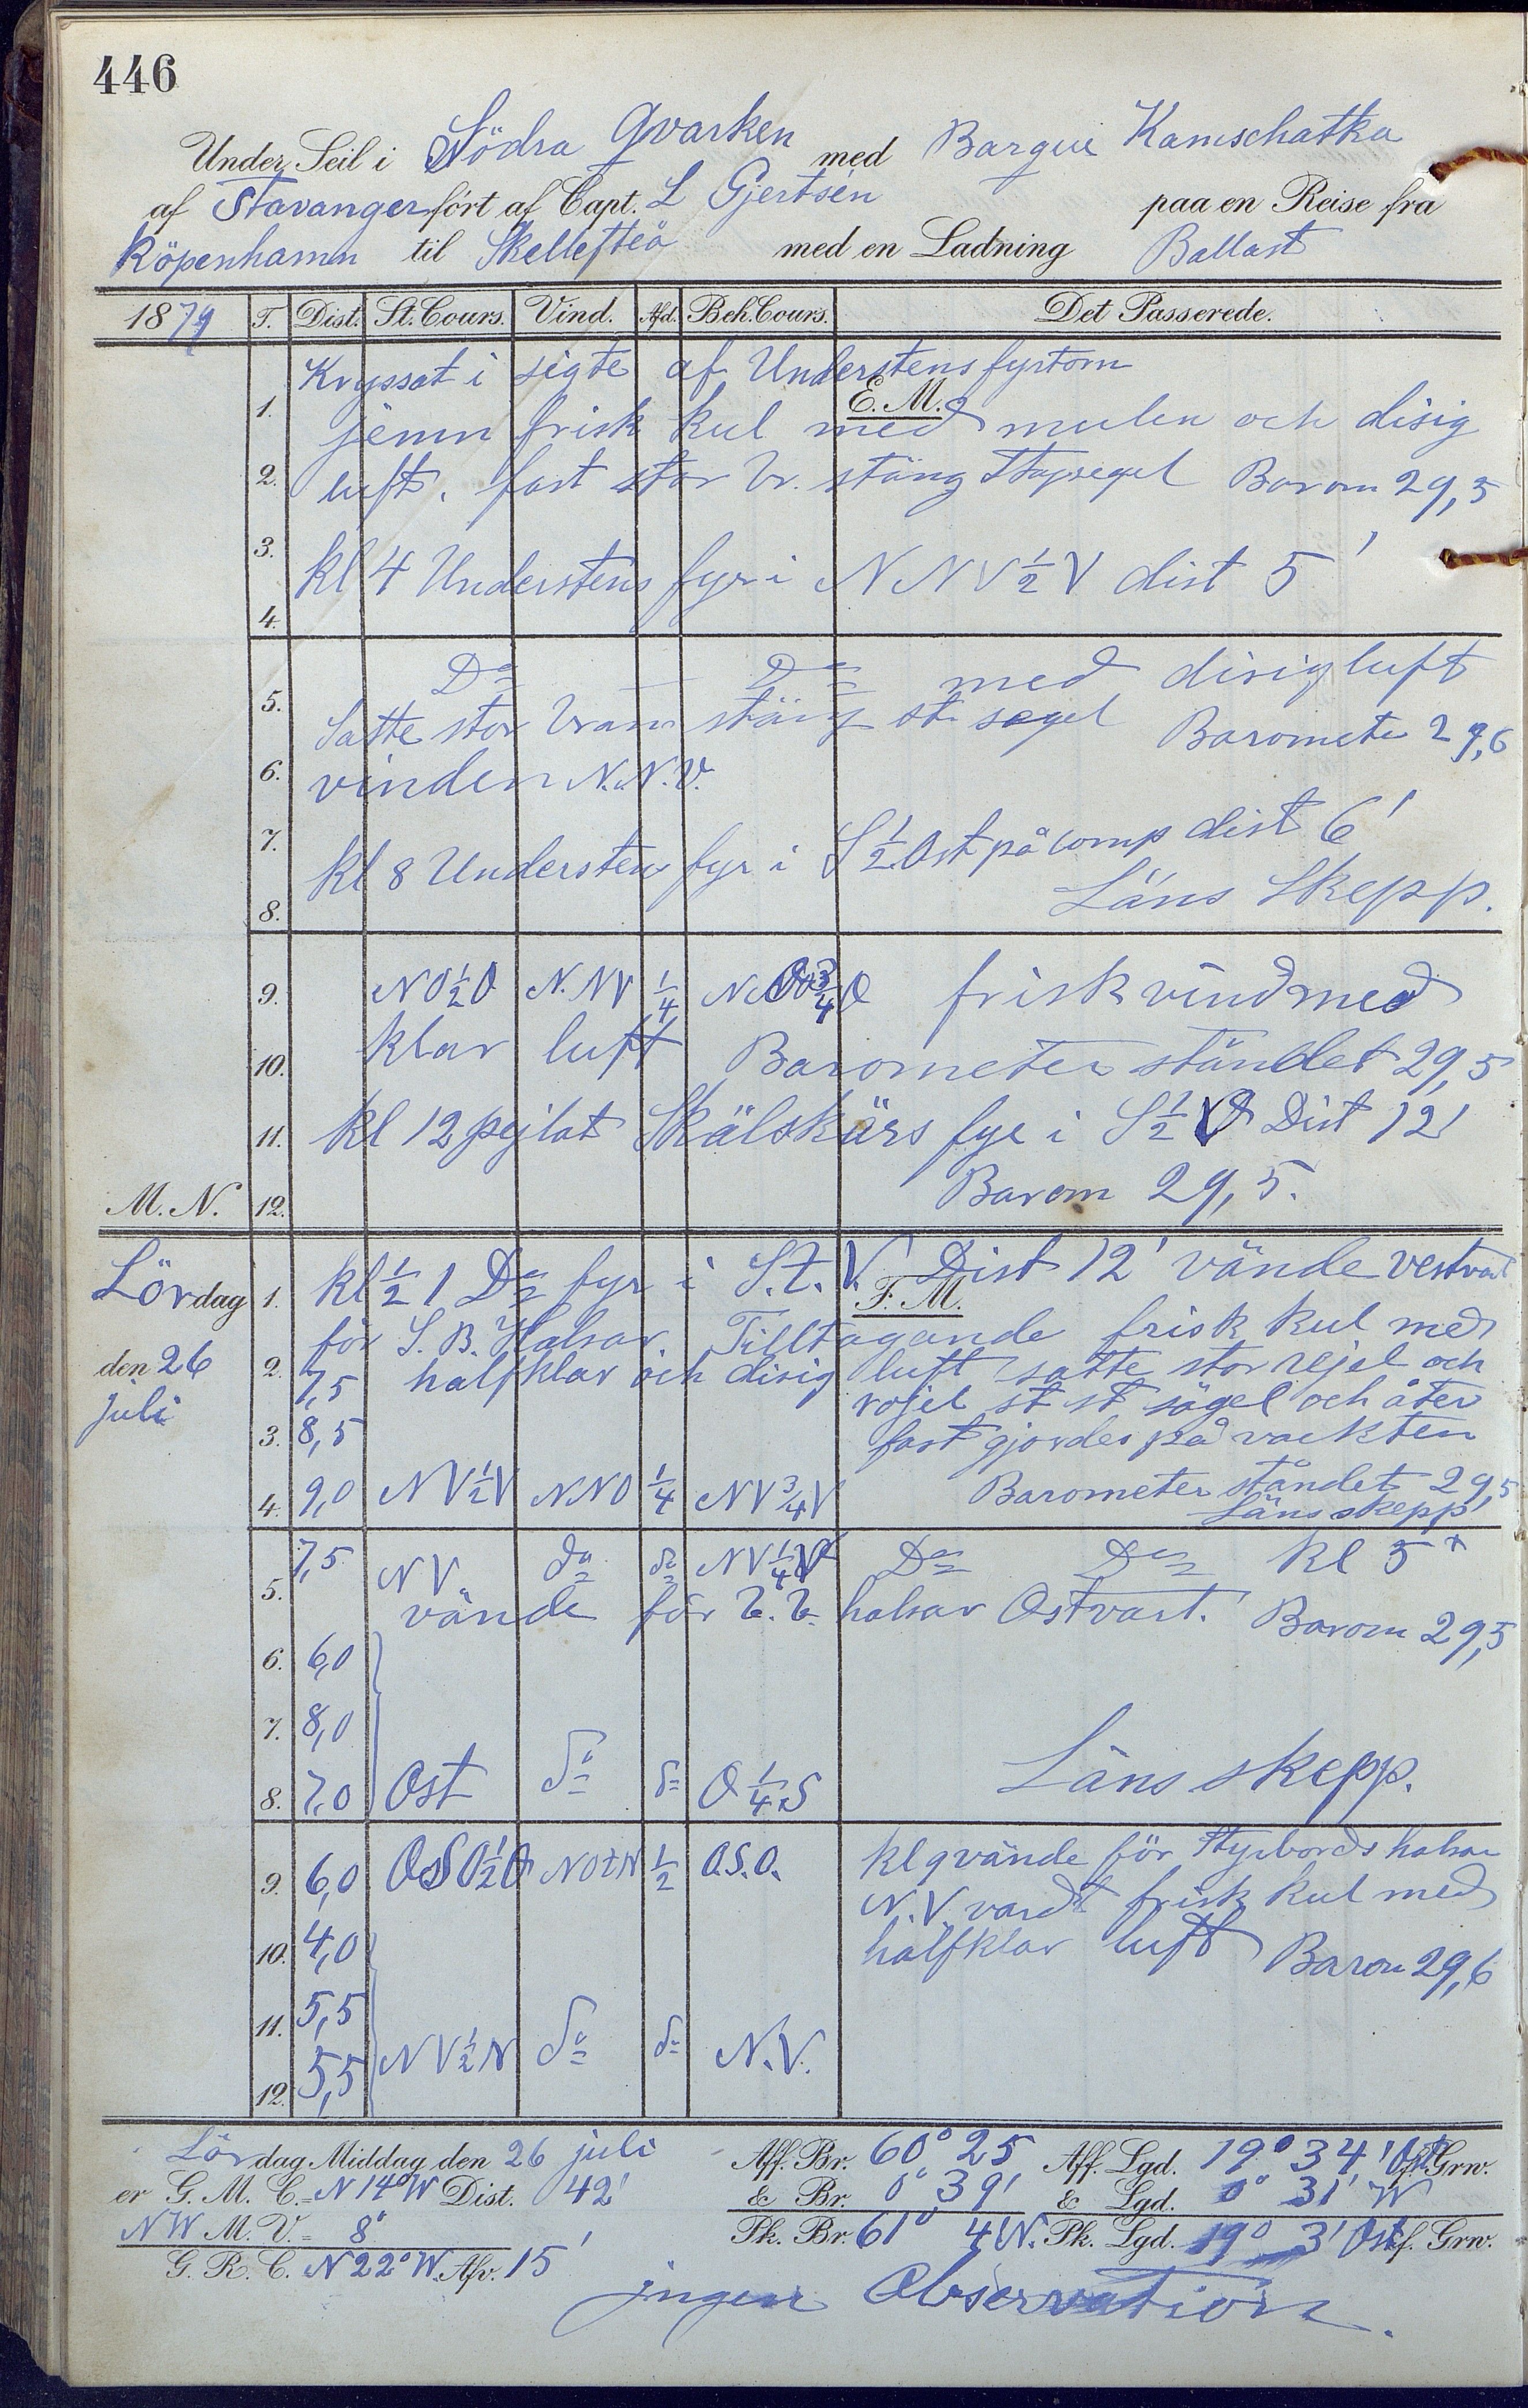 446
Under Seil i Södra Qvarken med Barque Kamschatka
af Stavanger fört af Capt. L Gjertsen paa en Reise fra
Köpenhamn til Skellefteå med en Ladning Ballast
1879 T. Dist. St. Cours. Vind. Afd. Beh. Cours. Det Passerede.
Kryssat i sigte af Understens fyrtorn
1. E. M.
jemn frisk kul med mulen och disig
2. luft. fast stor br. stäng stagsegel Barom 29,5
3.
kl 4 Understens fyr i N N V ½ V dist 5'
4.
Do Do med disig luft
5. Satte stor bram stäng st segel Baromete 29,6
6. vinden N.N.V.
7.
kl 8 Understens fyr i S ½ Ost på comp dist 6'
8. Läns Skepp.
9. NO½O N.NV ¼ NO¾O frisk vind med
klar luft Barometer ståndet 29,5
10.
11. kl 12 pejlat Skälskärs fyr i S½V Dist 12'
M. N. 12. Barom 29,5.
Lördag 1. kl ½ 1 Do fyr i S.t.V. Dist 12' vände vestvart
F. M.
för S. B. Halsar. Tilltagande frisk kul med
den 26 2. 7,5 halfklar och disig luft satte stor rejel och
juli rojel st st sägel och åter
3. 8,5 fast gjordes på vackten
4. 9,0 NV½V NNO ¼ NV¾V Barometer ståndet 29,5
Läns skepp
5. 7,5 NV do do NV¼V Do Do kl 5
vände för b.b. halsar Ostvart. Barom 29,5
6. 6,0
7. 8,0
8. 7,0 Ost do do O¼S Läns skepp.
9. 6,0 OSO½O NOtN ½ O.S.O. kl 9 vände för Styrbords halsar
N.V. vardt frisk kul med
10. 4,0 halfklar luft Barom 29,6
11. 5,5
12. 5,5 NV½N do do N.V.
Lördag Middag den 26 juli Aff. Br. 60° 25 Aff. Lgd. 19° 34' Ost f. Grw.
er G. M. C. = N 14° W Dist. 42' & Br. 0° 39' & Lgd. 0° 31' W
NW M. V. = 8° Pk. Br. 61° 4' N. Pk. Lgd. 19° 3' Ost f. Grw.
G. R. C. N 22° W. Afv. 15'
ingen Observation.